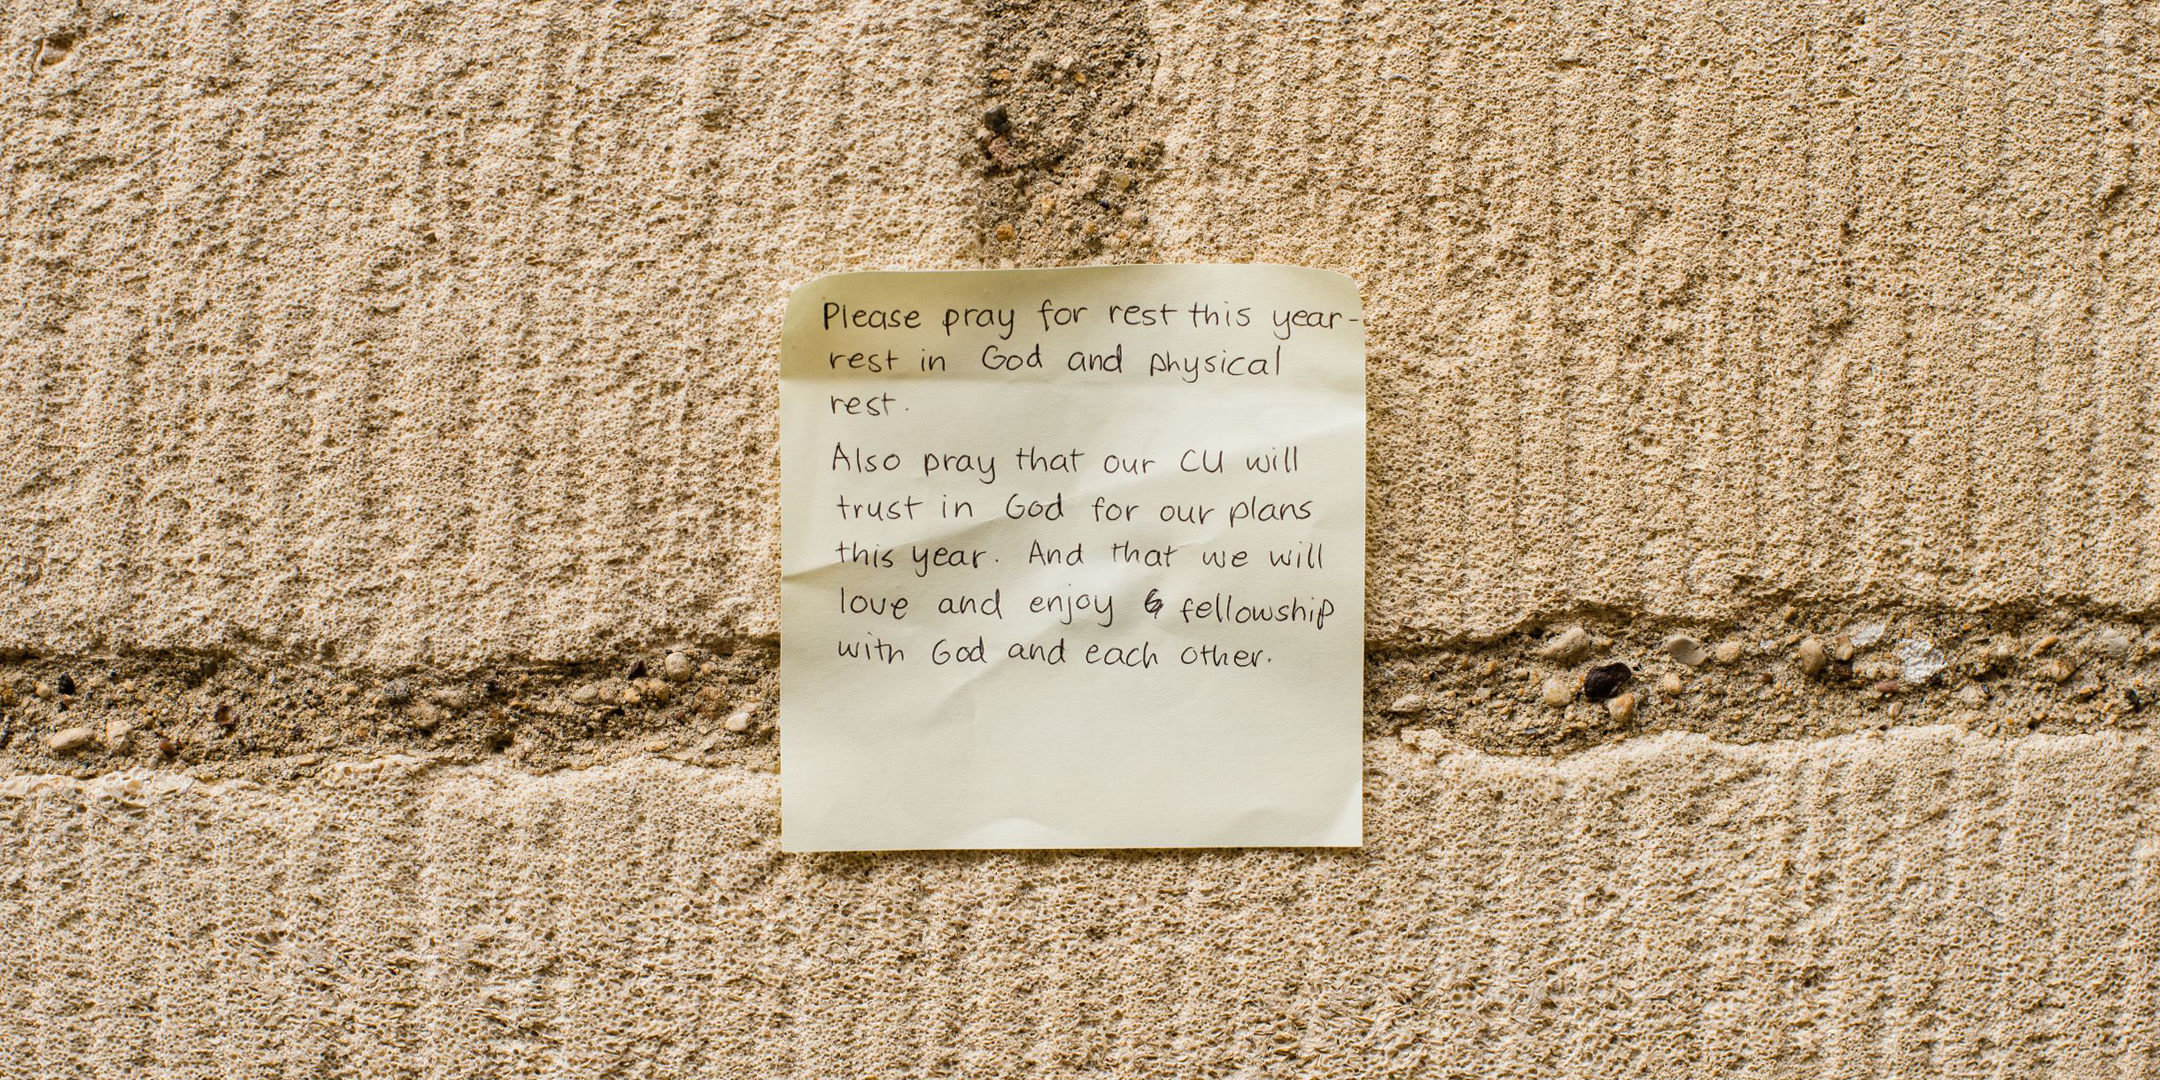 Please pray for rest this year-
rest in God and physical
rest.
Also pray that our CU will
trust in God for our plans
this year. And that we will
love and enjoy fellowship
with God and each other.